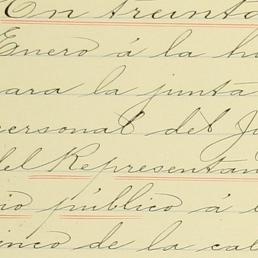 En treinta
Enero á la ho
para la junta
personal del Ju
del Representan
rio público á e
cinco de la cal